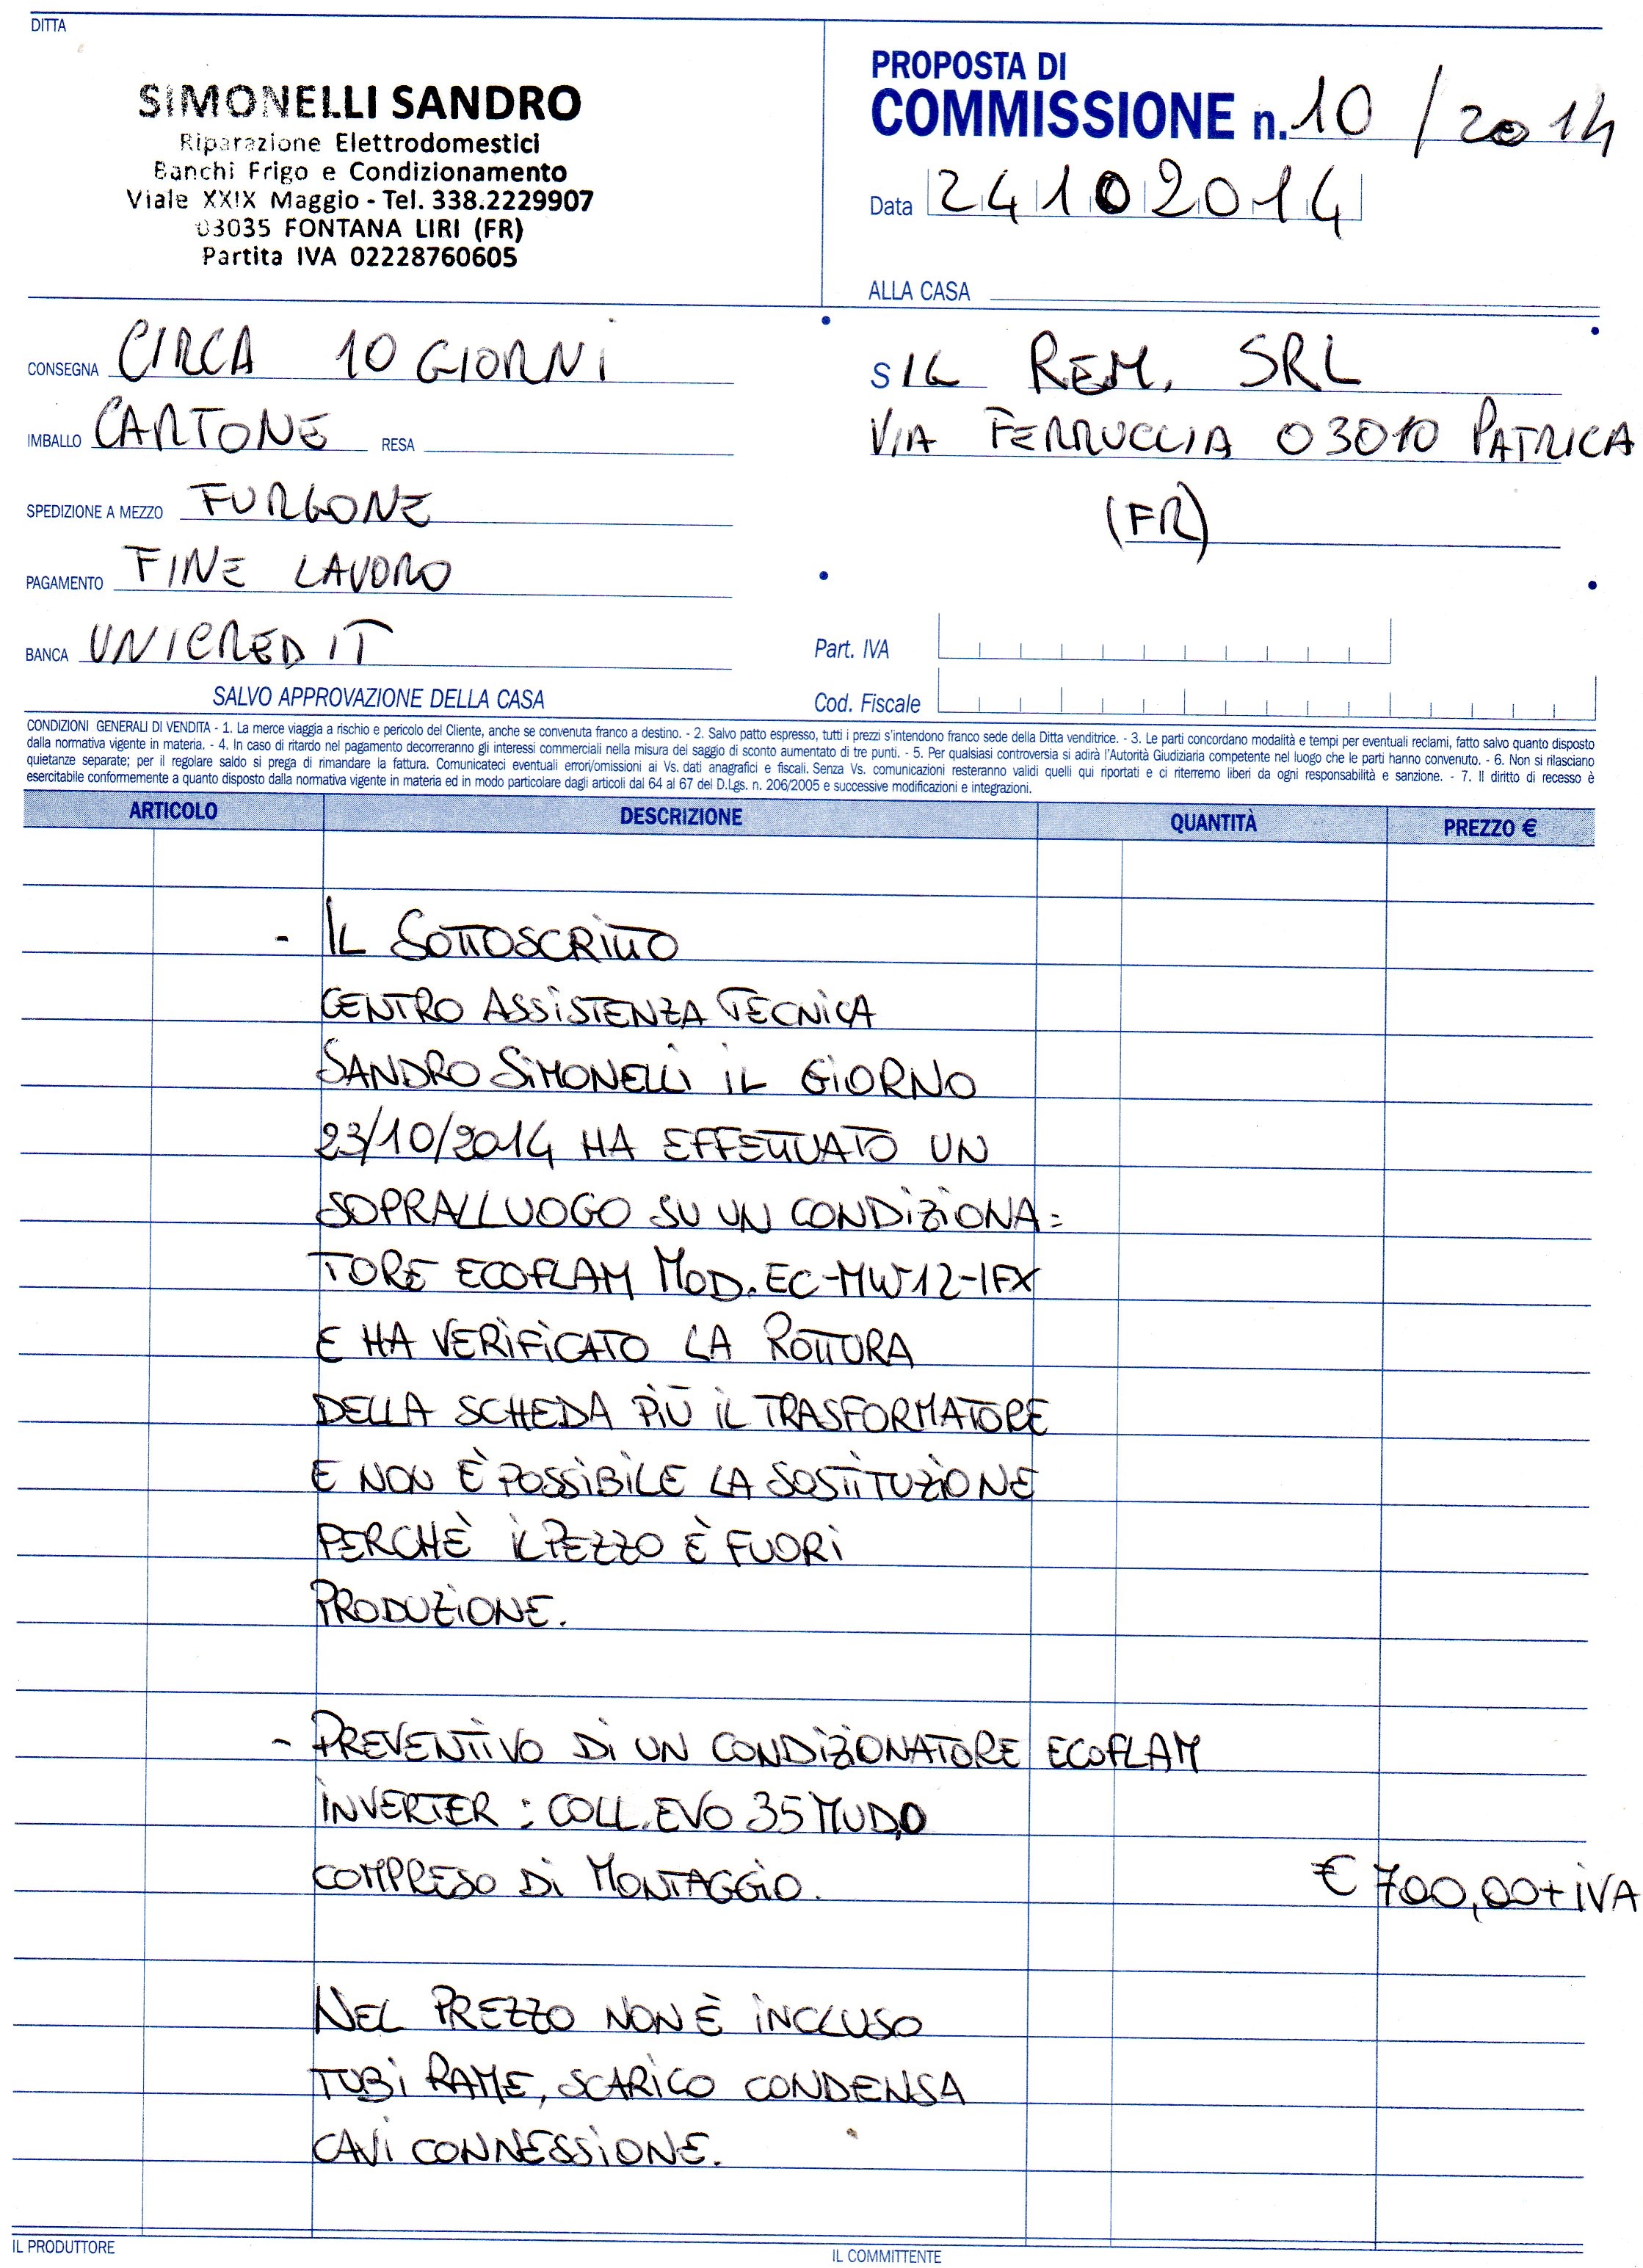 DITTA
SIMONELLI SANDRO
Riparazione Elettrodomestici
Banchi Frigo e Condizionamento
Viale XXIX Maggio - Tel. 338.2229907
03035 FONTANA LIRI (FR)
Partita IVA 02228760605
PROPOSTA DI
COMMISSIONE n. 10 / 2014
Data 24102014
ALLA CASA
CONSEGNA CIRCA 10 GIORNI
IMBALLO CARTONE RESA
SPEDIZIONE A MEZZO FURGONE
PAGAMENTO FINE LAVORO
BANCA UNICREDIT
SALVO APPROVAZIONE DELLA CASA
S REM. SRL
VIA FERRUCCIA 03010 PATRICA
(FR)
Part. IVA
Cod. Fiscale
CONDIZIONI GENERALI DI VENDITA - 1. La merce viaggia a rischio e pericolo del Cliente, anche se convenuta franco a destino. - 2. Salvo patto espresso, tutti i prezzi s'intendono franco sede della Ditta venditrice. - 3. Le parti concordano modalità e tempi per eventuali reclami, fatto salvo quanto disposto
dalla normativa vigente in materia. - 4. In caso di ritardo nel pagamento decorreranno gli interessi commerciali nella misura del saggio di sconto aumentato di tre punti. - 5. Per qualsiasi controversia si adirà l'Autorità Giudiziaria competente nel luogo che le parti hanno convenuto. - 6. Non si rilasciano
quietanze separate; per il regolare saldo si prega di rimandare la fattura. Comunicateci eventuali errori/omissioni ai Vs. dati anagrafici e fiscali. Senza Vs. comunicazioni resteranno validi quelli qui riportati e ci riterremo liberi da ogni responsabilità e sanzione. - 7. Il diritto di recesso è
esercitabile conformemente a quanto disposto dalla normativa vigente in materia ed in modo particolare dagli articoli dal 64 al 67 del D.Lgs. n. 206/2005 e successive modificazioni e integrazioni.
ARTICOLO DESCRIZIONE QUANTITÀ PREZZO €
- IL SOTTOSCRITTO
CENTRO ASSISTENZA TECNICA
SANDRO SIMONELLI IL GIORNO
23/10/2014 HA EFFETTUATO UN
SOPRALLUOGO SU UN CONDIZIONA=
TORE ECOFLAM MOD. EC-MW12-IFX
E HA VERIFICATO LA ROTTURA
DELLA SCHEDA PIÙ IL TRASFORMATORE
E NON È POSSIBILE LA SOSTITUZIONE
PERCHÈ IL PEZZO È FUORI
PRODUZIONE.
- PREVENTIVO DI UN CONDIZIONATORE ECOFLAM
INVERTER : COLL.EVO 35 MUD.O
COMPRESO DI MONTAGGIO. € 700,00+ IVA
NEL PREZZO NON È INCLUSO
TUBI RAME, SCARICO CONDENSA
CAVI CONNESSIONE.
IL PRODUTTORE
IL COMMITTENTE